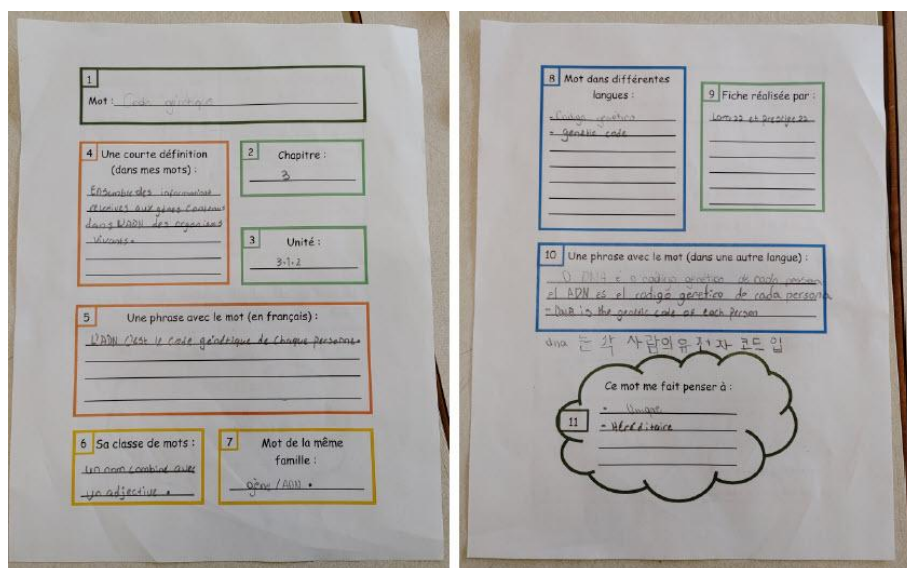 1
Mot : Code génétique
4 Une courte définition
(dans mes mots) :
Ensemble des informations
relatives aux gènes contenus
dans l'ADN des organismes
vivants.
2 Chapitre :
3
3 Unité :
3.1.2
5 Une phrase avec le mot (en français) :
L'ADN c'est le code génétique de chaque personne.
6 Sa classe de mots :
un nom combiné avec
un adjective.
7 Mot de la même
famille :
gène / ADN.
8 Mot dans différentes
langues :
- Código genético
- genetic code
9 Fiche réalisée par :
et
10 Une phrase avec le mot (dans une autre langue) :
O DNA é o código genético de cada person
el ADN es el codigo genetico de cada persona
- DNA is the genetic code of each person
dna 는 각 사람의 유전자 코드 입
Ce mot me fait penser à :
11
- Unique
- Héréditaire